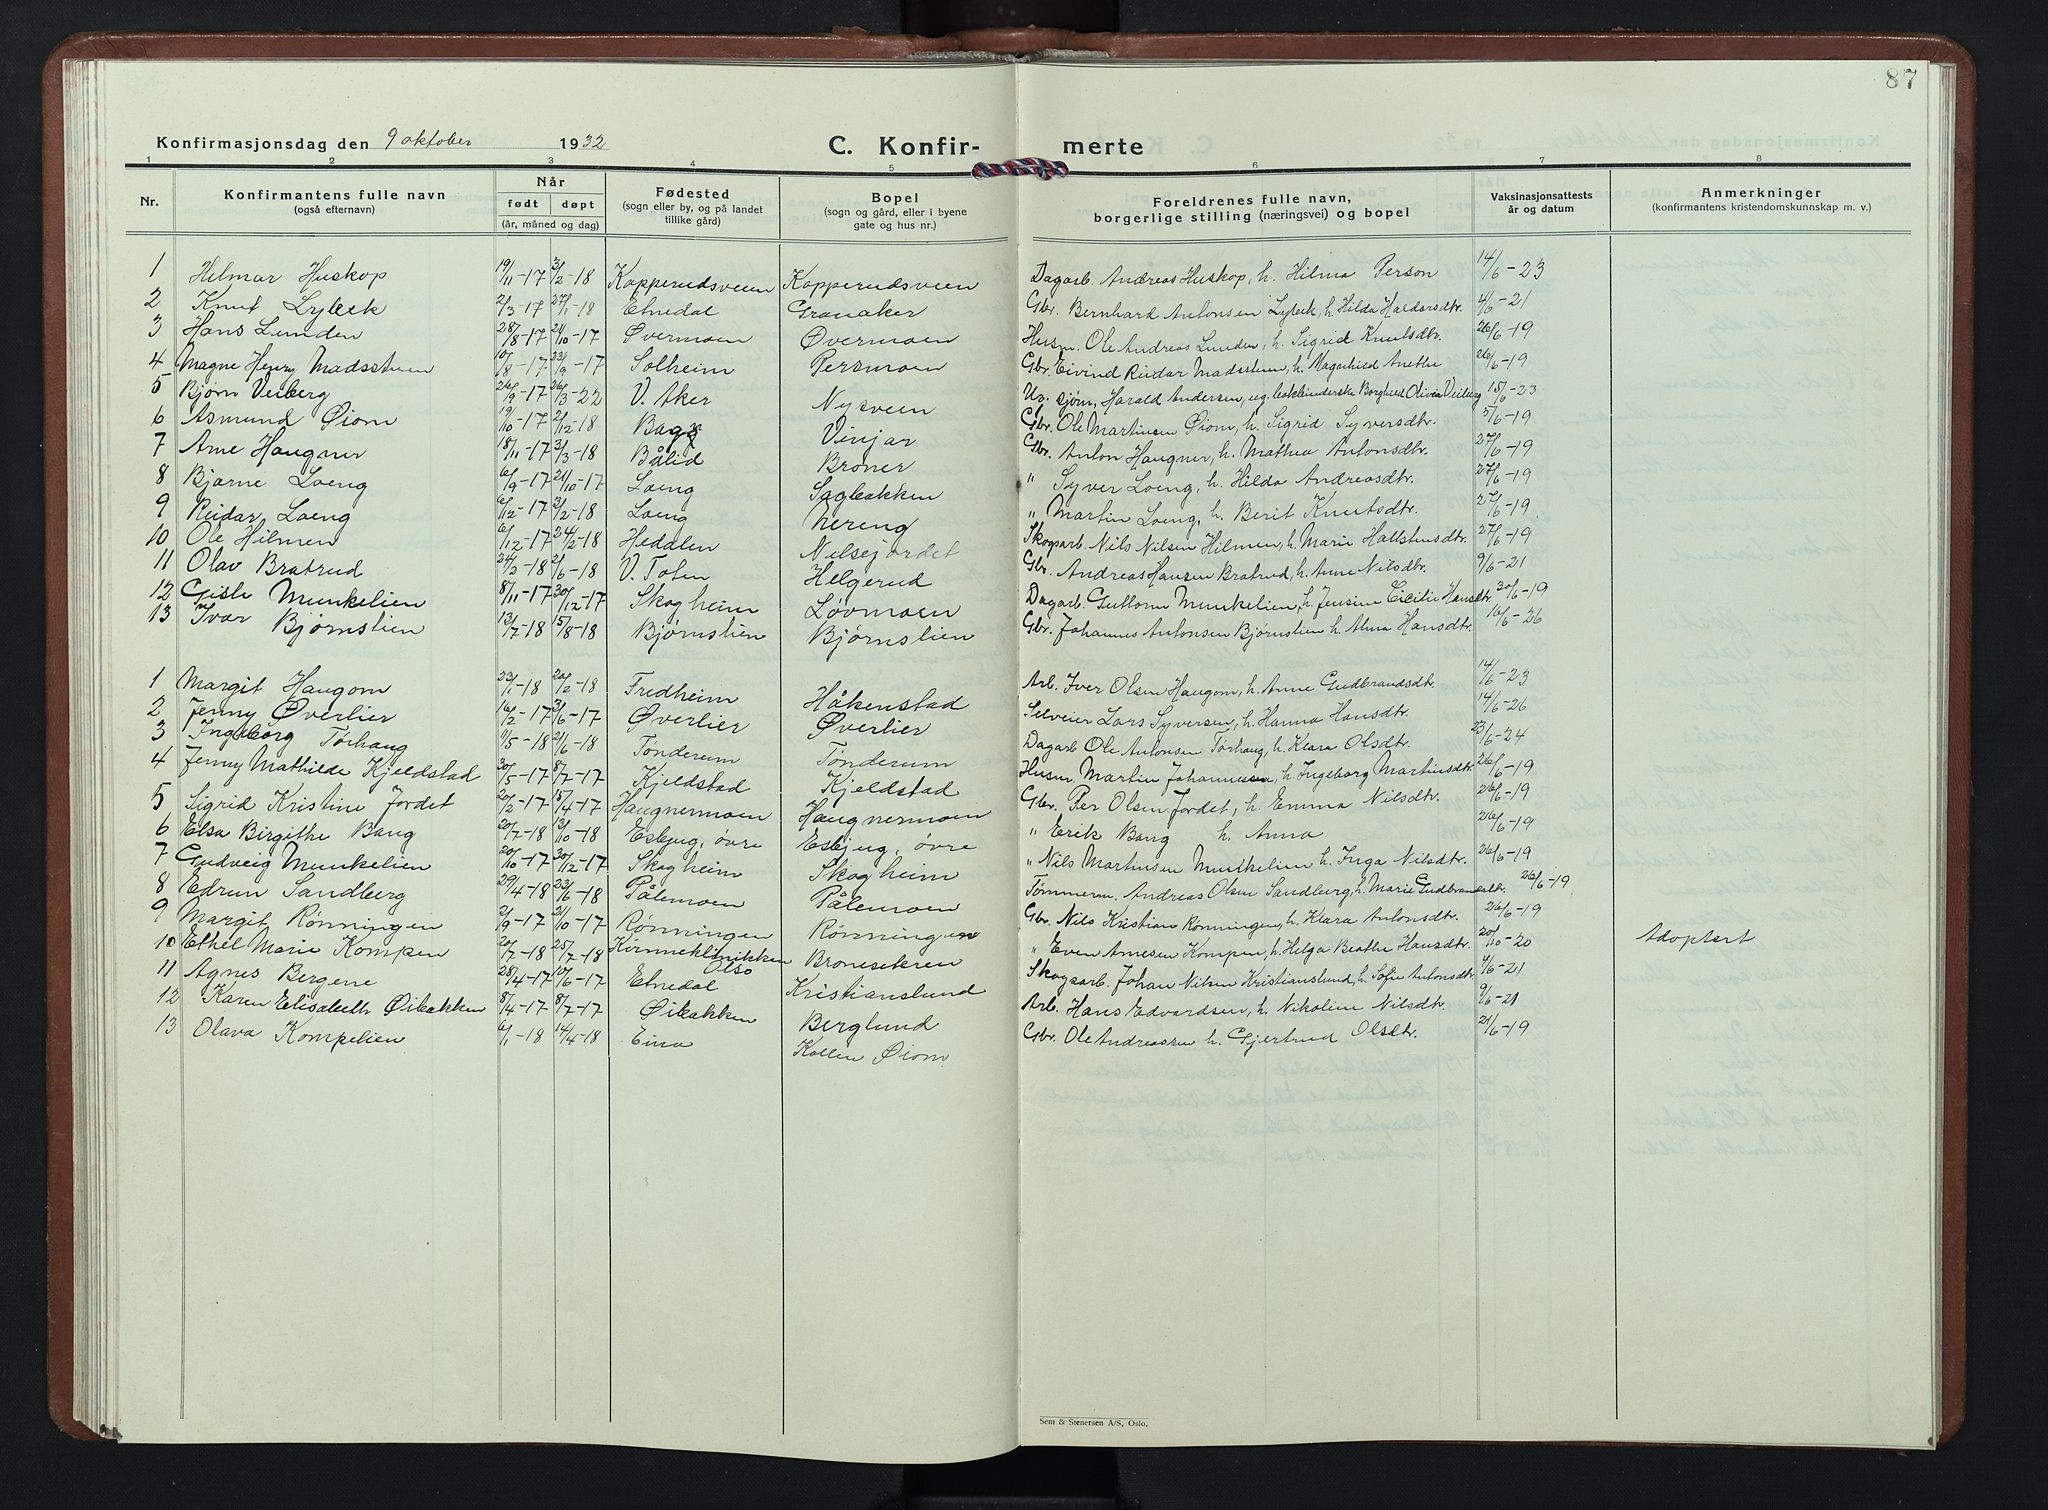 87
Konfirmasjonsdag den 9 oktober 1932
C. Konfir-
merte
1 2 3 4 5 6 7 8
Nr.
Konfirmantens fulle navn
(også efternavn)
Når
født døpt
(år, måned og dag)
Fødested
(sogn eller by, og på landet
tillike gård)
Bopel
(sogn og gård, eller i byene
gate og hus nr.)
Foreldrenes fulle navn,
borgerlige stilling (næringsvei) og bopel
Vaksinasjonsattests
år og datum
Anmerkninger
(konfirmantens kristendomskunnskap m. v.)
1 Hilmar Huskop 19/11-17 3/2-18 Kopperudsveien Kopperudsveen Dagarb. Andreas Huskop, h. Hilma Person 14/6-23
2 Knut Lybeck 2/3-17 27/1-18 Etnedal Granaker Gbr. Bernhard Antonsen Lybeck, h. Hilda Haldorsdtr. 4/6-21
3 Hans Lunden 28/8-17 21/10-17 Øvermoen Øvermoen Husm. Ole Andreas Lunden, h. Sigrid Knutsdtr. 26/6-19
4 Magne Henry Madssteen 10/8-17 23/9-17 Solheim Persmoen Gbr. Eivind Reidar Madssteen, h. Magnhild Anethe 26/6-19
5 Bjørn Veiberg 26/9-17 26/3-22 V. Aker Nysveen sjøm. Harald Andersen, ug. Borghild Olivia Veiberg 15/6-23
6 Asmund Øiom 19/10-17 2/12-18 Bagn Vinjar Gbr. Ole Martinsen Øiom, h. Sigrid Syversdtr. 5/6-19
7 Arne Haugner 18/11-17 3/3-18 Bålid Broner Gbr. Anton Haugner, h. Mathea Antonsdtr. 27/6-19
8 Bjarne Loeng 6/9-17 21/10-17 Loeng Sagbakken " Syver Loeng, h. Hilda Andreasdtr. 27/6-19
9 Reidar Loeng 6/12-17 3/2-18 Loeng Nereng " Martin Loeng, h. Berit Knutsdtr. 27/6-19.
10 Ole Hilmen 6/12-17 24/2-18 Hedalen Nelsejordet Skogsarb. Nils Nilsen Hilmen, h. Marie Hallstensdtr. 27/6-19
11 Olav Bratrud 24/2-18 2/6-18 V. Toten Helgerud Gbr. Andreas Hansen Bratrud, h. Anne Nilsdtr. 9/6-21
12 Gisle Munkelien 8/11-17 30/12-17 Skogheim Løvmoen Dagarb. Guttorm Munkelien, h. Jensine Cicilie Hansdtr. 30/6-19
13 Ivar Bjørnslien 13/7-18 15/8-18 Bjørnslien Bjørnslien Gbr. Johannes Antonsen Bjørnslien h. Alma Hansdtr. 16/6-26
1 Margit Haugom 23/1-18 20/2-18 Fredheim Håkenstad Arb. Iver Olsen Haugom, h. Anne Gudbrandsdtr. 14/6-23
2 Jenny Øverlier 16/2-17 3/6-17 Øverlier Øverlier Selveier Lars Syversen, h. Hanna Hansdtr. 14/6-26
3 Ingeborg Tørhaug 11/5-18 2/6-18 Tønderum Tønderum Dagarb Ole Antonsen Tørhaug, h. Klara Olsdtr. 23/6-24
4 Jenny Mathilde Kjeldstad 30/5-17 8/7-17 Kjeldstad Kjeldstad Husm. Martin Johannesen, h. Ingeborg Martinsdtr. 26/6-19
5 Sigrid Kristine Jordet 20/2-17 15/4-17 Haugnermoen Haugnermoen Gbr. Per Olsen Jordet, h. Emma Nilsdtr. 26/6-19
6 Elsa Birgithe Bang 20/7-18 13/10-18 Esbjug, øvre Esbjug, øvre " Erik Bang h. Anna 26/6-19
7 Gudveig Munkelien 20/10-17 30/12-17 Skogheim Skogheim " Nils Martinsen Munkelien h. Inga Nilsdtr. 26/6-19
8 Edrun Sandberg 29/4-18 23/6-18 Pålemoen Pålemoen Tømmerm. Andreas Olsen Sandberg, h. Marie Gudbrandsdtr. 26/6-19
9 Margit Rønningen 2/9-17 21/10-17 Rønningen Rønningen Gbr. Nils Kristian Rønningen, h. Klara Antonsdtr. 26/6-19
10 Ethel Marie Kompen 20/7-18 25/7-18 Kvinneklinikken Olso Bronesekren " Even Arnesen Kompen, h. Helga Beathe Hansdtr. 20/10-20 Adoptert
11 Agnes Bergene 28/4-17 10/6-17 Etnedal Kristianslund Skogsarb. Johan Nilsen Kristianslund, h. Sofie Antonsdtr. 4/6-21
12 Karen Elisabeth Øibakken 8/4-17 8/7-17 Øibakken Berglund Arb. Hans Edvardsen, h. Nikoline Nilsdtr. 9/6-21
13 Olava Kompelien 6/1-18 14/4-18 Eina Kollen Øiom Gbr. Ole Andreassen h. Gjertrud Olsdtr. 21/6-19
Sem & Stenersen A/S, Oslo.